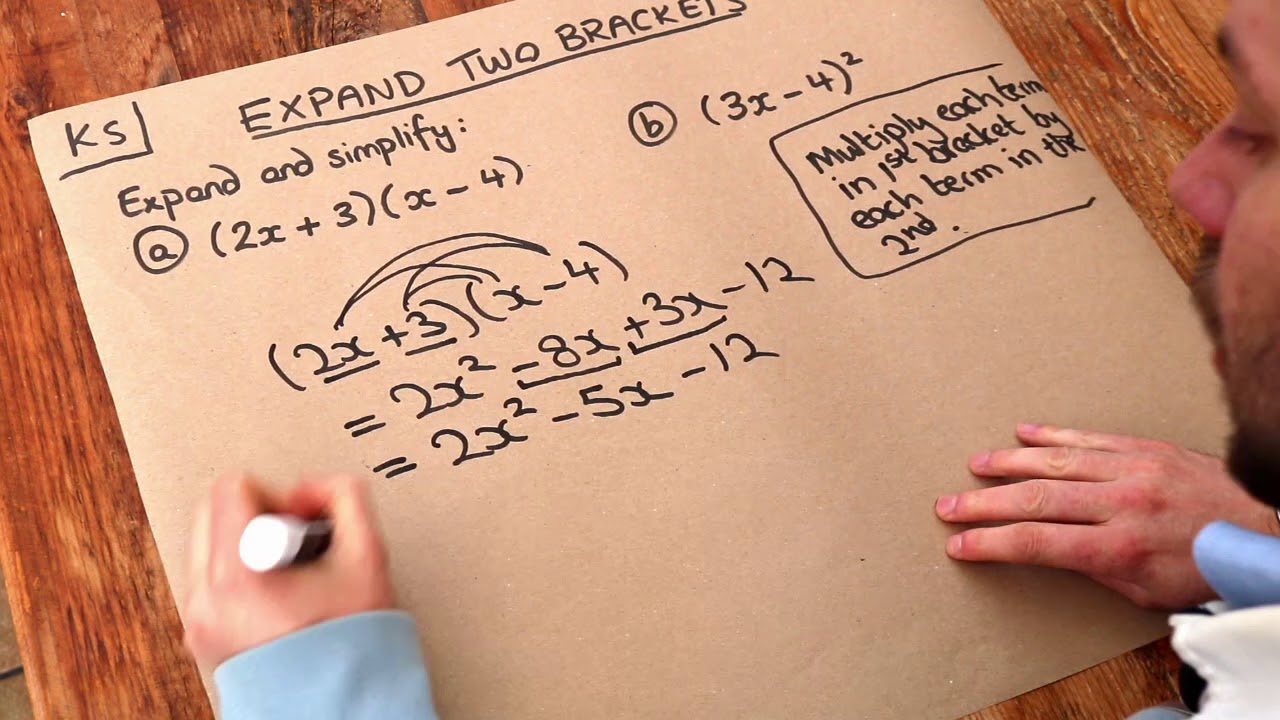 EXPAND TWO BRACKETS
KS
Expand and simplify:
(a) (2x + 3)(x - 4)
(b) (3x - 4)²
Multiply each term
in 1st bracket by
each term in the
2nd.
(2x + 3)(x - 4)
= 2x² - 8x + 3x - 12
= 2x² - 5x - 12